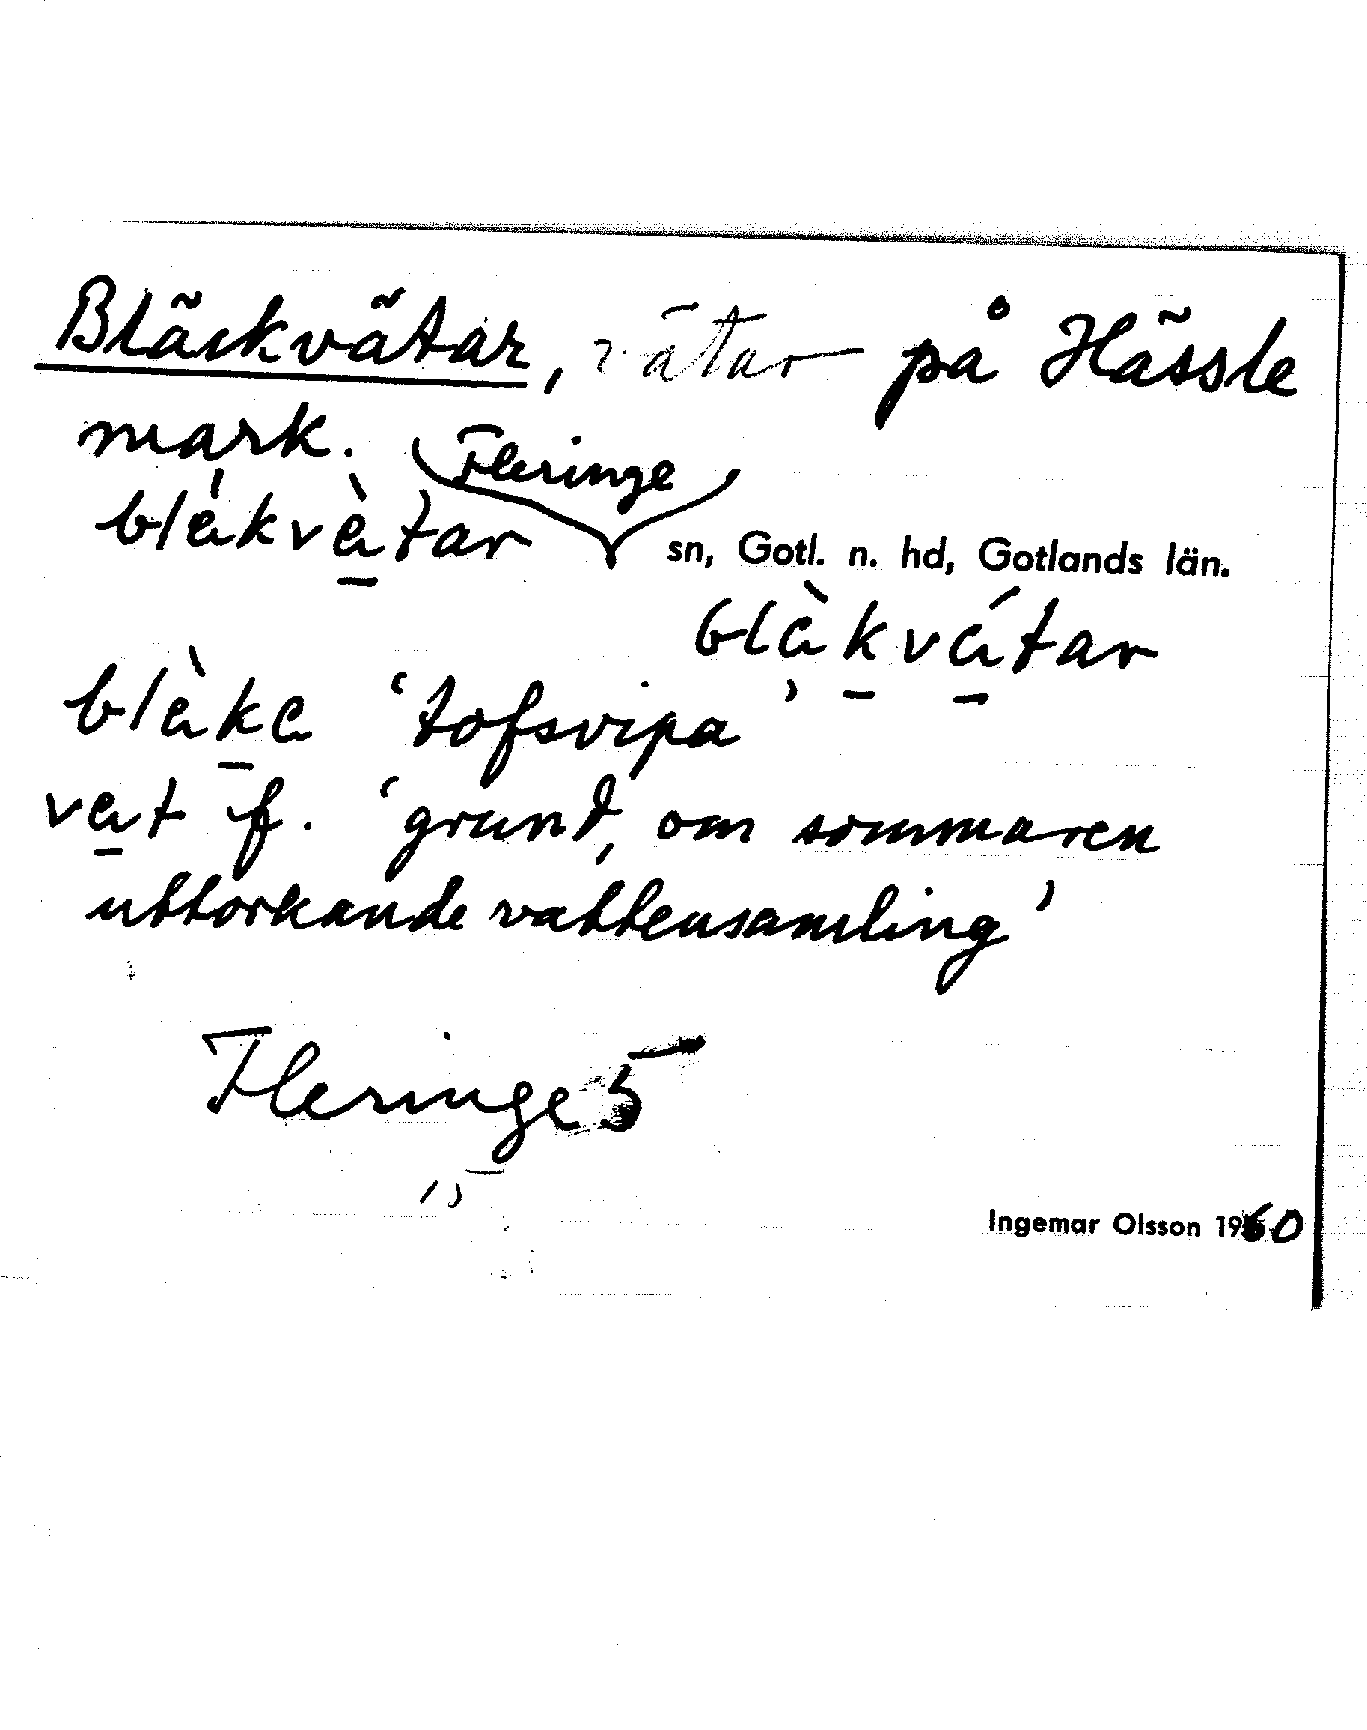 Bläckvätar, vätar på Hässle
mark.
Fleringe
bläkvàtar
sn, Gotl. n. hd, Gotlands län.
blàkvátar
blàka ‘tofsvipa’
vat f. ‘grund, om sommaren
uttorkande vattensamling’
Fleringe 5
Ingemar Olsson 1960